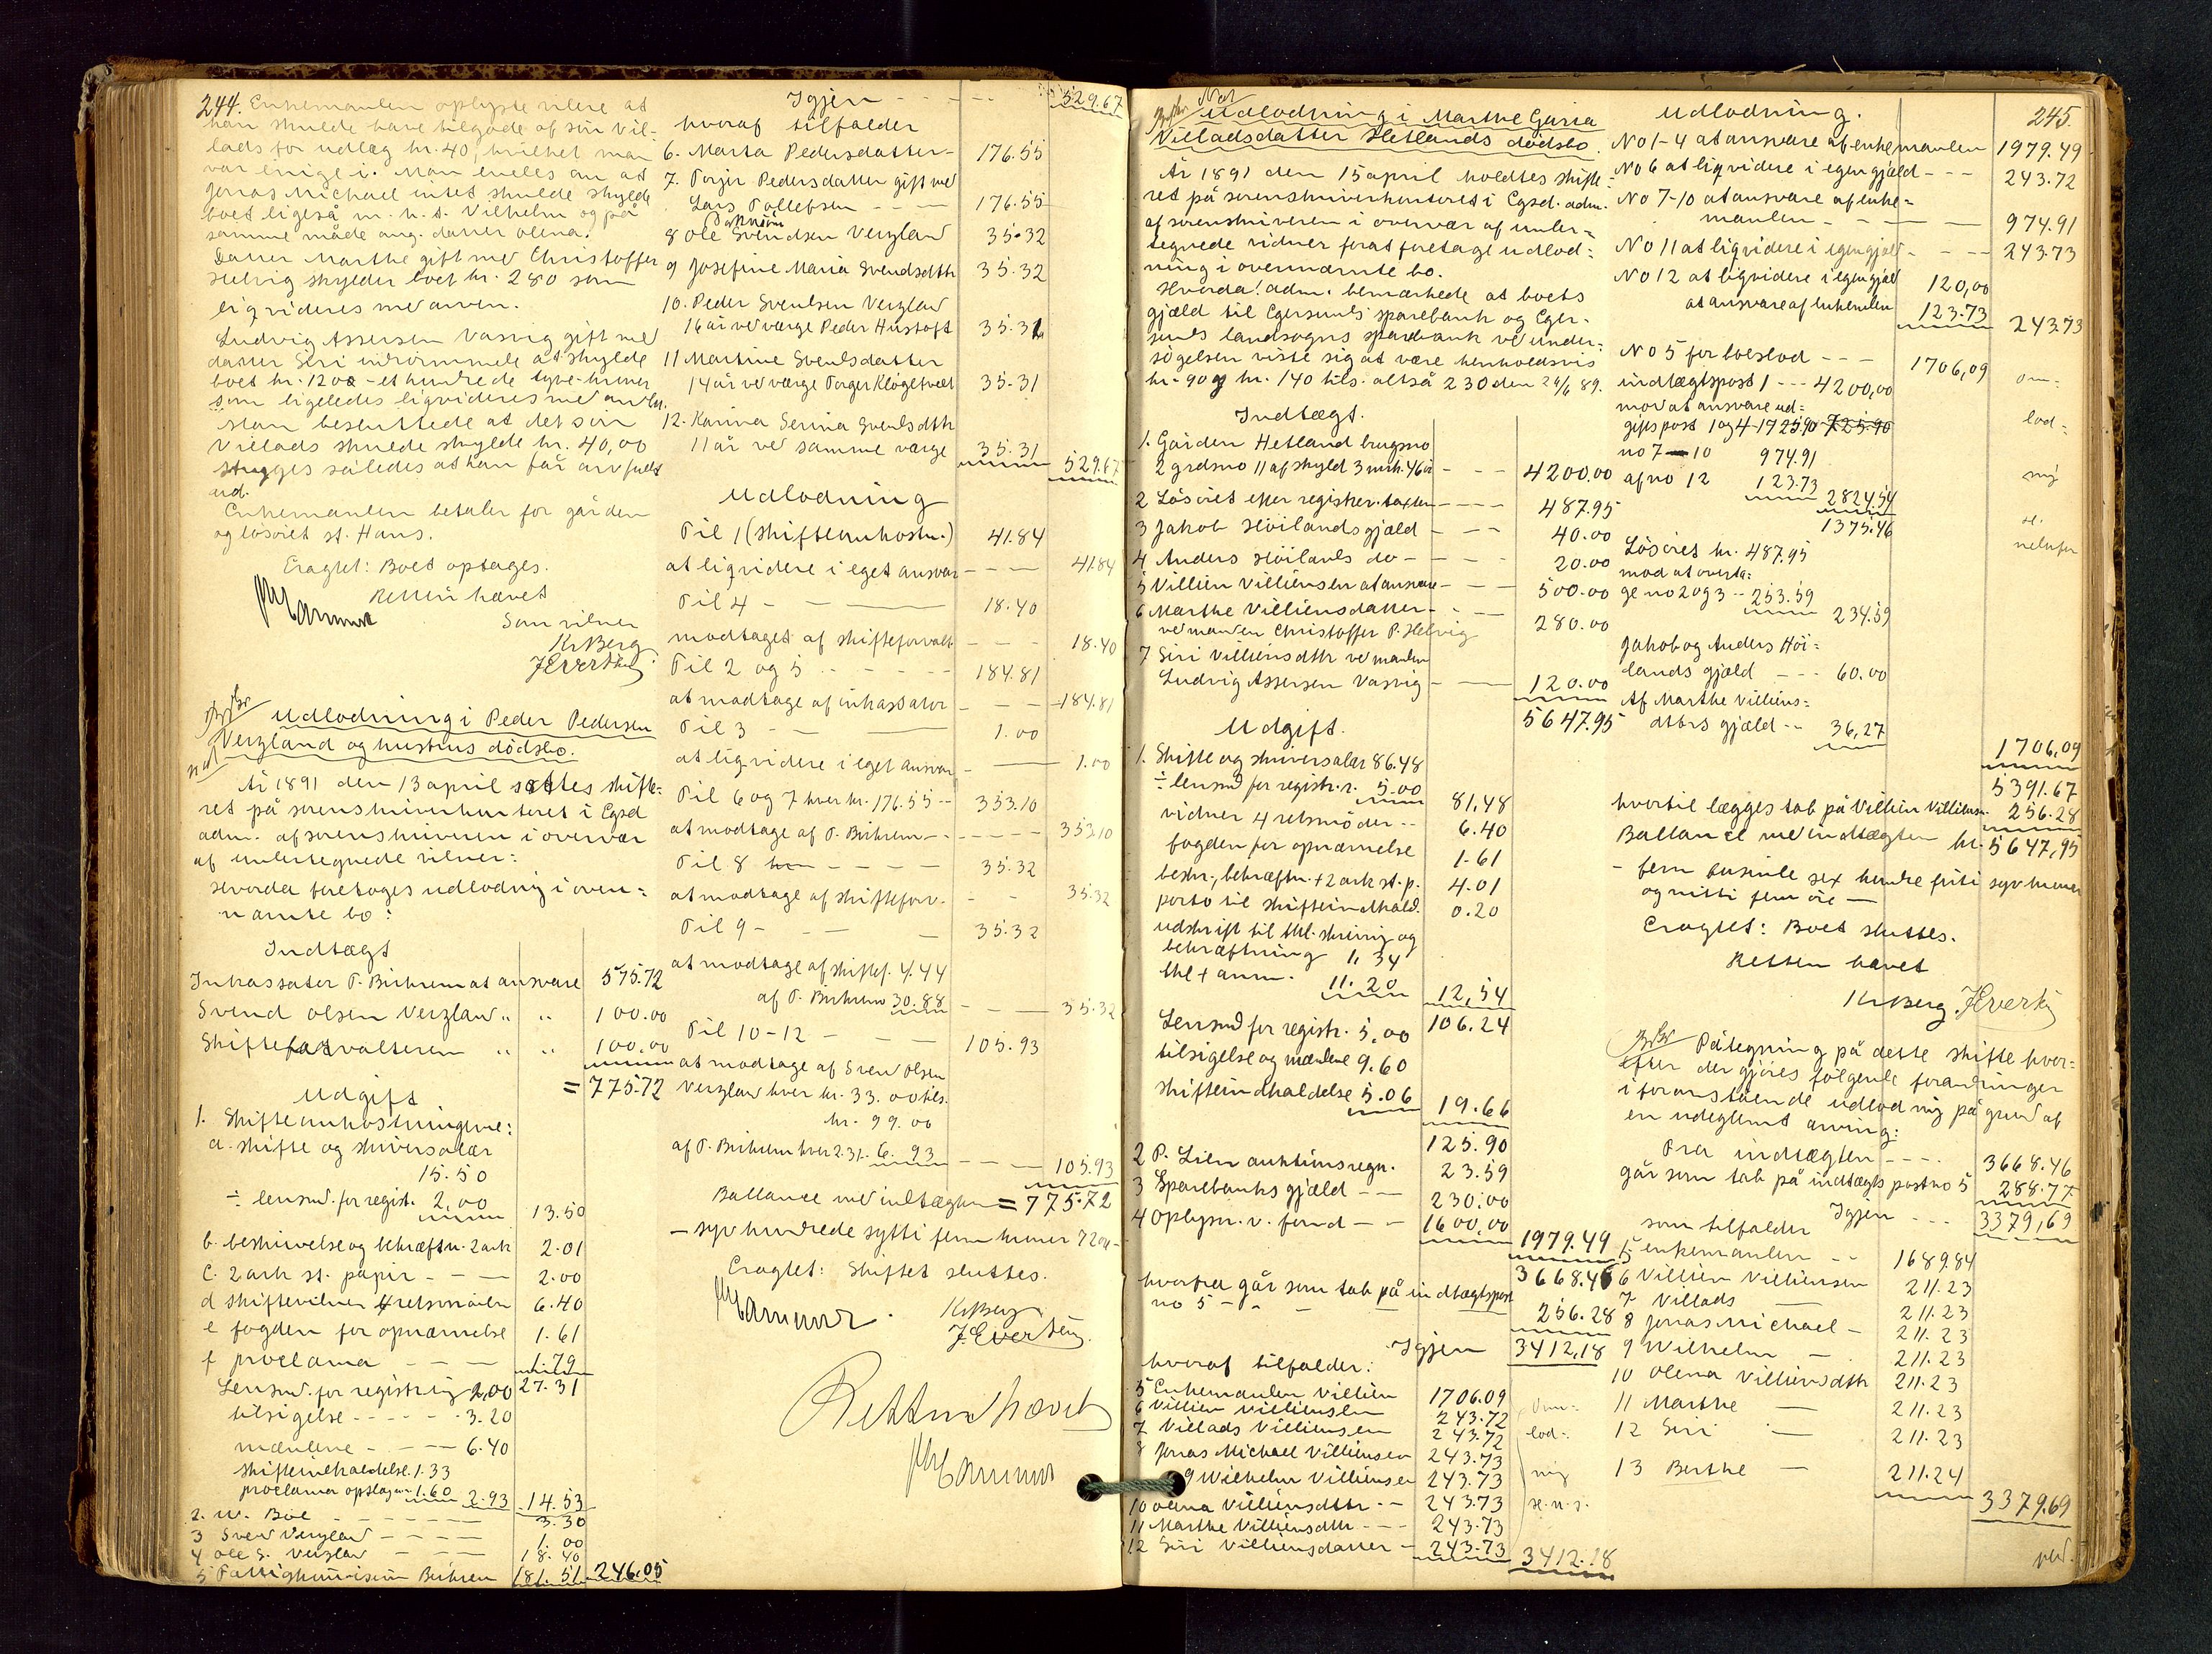 244. Enkemanden oplyste videre at
han skulde have tilgode af sön Vil-
lads for udlæg kr. 40, hvilket man
var enige i. Man enedes om at
Jonas Michael intet skulde skylde
boet ligeså m. h. t. Vilhelm og på
samme måde ang. datter Olena.
Datter Marthe gift med Christoffer
Helvig skylder boet kr. 280 som
liqvideres med arven.
Ludvig Assersen Vasvig gift med
datter Siri indrømmede at skylde
boet kr. 120 - et hundrede tyve kroner
som ligeledes liqvideres med arven.
Man besluttede at det sön
Villads skulde skylde kr. 40,00
stryges således at han får arv fuldt
ud.
Enkemanden betaler for gården
og løsöret st. Hans.
Eragtet: Boet optages.
Retten hævet
Som vidner
Kr Berg
J Evertsen
Udlodning i Peder Pedersen
Verzland og hustrus dödsbo.
År 1891 den 13 april sattes skifte-
ret på sorenskriverkontoret i Egsd
adm. af sorenskriveren i overvær
af undertegnede vidner:
Hvorda foretoges udlodnig i oven-
nævnte bo:
Indtægt
Inkassator T. Birkrem at ansvare 575.72
Svend Olsen Verzland " " 100.00
Skifteforvalteren " " 100.00
= 775.72
Udgift
1. Skifteomkostningerne:
a. skifte og skriversalær
15.50
÷ lensmd. for regist. 2,00 13.50
b. beskrivelse og bekræftn. 2 ark 2.01
c. 2 ark st. papir - - 2.00
d skiftevidner 4 retsmöder 6.40
e fogden for opnævnelse 1.61
f proclama - - - 1.79
Lensmd. for registrig 2,00 27.31
tilsigelse - - - - 3.20
mændene - - - 6.40
skifteindkaldelse 1.33
proclama opslag 1.60 2.93 14.53
2. W. Böe - - - 3.30
3 Svend Verzland - - - 1.00
4 Ole S. Verzland - - 18.40
5 Fattigkommissionen Birkrem 181.51 246.05
Igjen - - - 529.67
hvoraf tilfalder
6. Marta Pedersdatter - 176.55
7. Torjer Pedersdatter gift med
Lars Tollefsen - - - 176.55
8 Ole Svendsen Verzland 35.32
9 Josefine Maria Svendsdtr 35.32
10. Peder Svendsen Verzland
16 år ved værge Peder Hustoft 35.31
11 Martine Svendsdatter
14 år ved værge Torger Klögetvedt 35.31
12. Karina Serina Svendsdtr
11 år ved samme værge 35.31
529.67
Udlodning
Til 1 (skifteomkostn.) 41.84
at liqvidere i eget ansvar - - - 41.84
Til 4 - - 18.40
modtaget af skifteforvalt - - - 18.40
Til 2 og 5 - - - 184.81
at modtage af inkassator - - - 184.81
Til 3 - - 1.00
at liqvidere i eget ansvar - 1.00
Til 6 og 7 hver kr. 176.55 - 353.10
at modtage af T. Birkrem - - - 353.10
Til 8 - - - 35.32
at modtage af skifteforv. - - 35.32
Til 9 - - - 35.32
at modtage af skiftef. 4.44
af T. Birkrem 30.88 - 35.32
Til 10-12 - - - 105.93
at modtage af Svend Olsen
Verzland hver kr. 33.00 tils.
kr. 99.00
af T. Birkrem hver 2.31 - 6.93 - - 105.93
Ballance med indtægten = 775.72
- syv hundrede sytti fem kroner 72 öre -
Eragtet: Skiftet sluttes.
Kr Berg
J. Evertsen.
Retten hævet
245.
Udlodning i Marthe Garia
Villadsdatter Hetlands dödsbo.
År 1891 den 15 april holdtes skifte-
ret på sorenskriverkontoret i Egsd. adm.
af sorenskriveren i overvær af under-
tegnede vidner forat foretage udlod-
ning i ovennævnte bo.
Hvorda! adm. bemærkede at boets
gjæld til Egersunds sparebank og Eger-
sunds landsogns sparebank ved under-
sögelsen viste sig at være henholdsvis
kr. 90 og kr. 140 tils. altså 230 den 24/6 89.
Indtægt.
1. Gården Hetland brugsno
2 grdsno 11 af skyld 3 mrk. 46 ör - - - 4200.00
2 Lösöret efter registrer. taxten - - - 487.95
3 Jakob Höilands gjæld - - - 40.00
4 Anders Höilands do - - - 20.00
5 Villien Villiensen at ansvare - - - 500.00
6 Marthe Villiensdatter - - -
ved manden Christoffer P. Helvig 280.00
7 Siri Villiensdtr ved manden
Ludvig Assersen Vasvig - - 120.00
5647.95
Udgift.
1. Skifte og skriversalær 86.48
÷ lensmd for registr. 5.00 81.48
vidner 4 retsmöder - - 6.40
fogden for opnævnelse 1.61
beskr., bekræftn. + 2 ark st. p. 4.01
porto til skifteindkald. 0.20
udskrift til thl. skrivnig og
bekræftning 1,34
thl + anm. 11.20 12,54
106.24
Lensmd for registr. 5,00
tilsigelse og mændene 9.60
skifteindkaldelse 5.06 19.66
125.90
2 P. Lien auktionsregn. 23.59
3 Sparebanks gjæld - - 230.00
4 Oplysn. v. fornd - - 1600.00
1979.49
3668.46
hvorfra går som tab på indtægtspost
no 5 - - 256.28
Igjen 3412,18
hvoraf tilfalder:
5 Enkemanden Villien 1706.09
6 Villien Villiensen 243.72
7 Villads Villiensen 243.72
8 Jonas Michael Villiensen 243.73
9 Wilhelm Villiensen 243.73
10 Olena Villiensdtr - - 243.73
11 Marthe Villiensdtr - - - 243.73
12 Siri Villiensdatter - 243.73 3412.18
Udlodning.
No 1-4 at ansvare af enkemanden 1979.49
No 6 at liqvidere i egen gjæld - - - 243.72
No 7-10 at ansvare af enke-
manden - - - 974.91
No 11 at liqvidere i egen gjæld - - - 243.73
No 12 at liqvidere i egen gjæld 120,00
at ansvare af enkemanden 123.73
243.73
No 5 for boeslod - - - 1706,09
indtægtspost 1 - - - 4200,00
mod at ansvare ud-
giftspost 1 og 4 1725.90 725.90
no 7-10 974.91
af no 12 123.73
2824.54
1375.46
Lösöret kr. 487.95
mod at overta-
ge no 2 og 3 - - 253.59
234.59
Jakob og Anders Höi-
lands gjæld - - - 60.00
Af Marthe Villiens-
dtrs gjæld - - 36,27
1706,09
5391.67
hvortil lægges tab på Villien Villiensen 256.28
Ballance med indtægten kr. 5647,95
- fem tusinde sex hundre firti syv kroner
og nitti fem öre -
Eragtet: Boet sluttes.
Retten hævet
Kr Berg. J Evertsen
Påtegning på dette skifte hvor-
efter der gjöres fölgende forandringer
i foranstående udlodnig på grund af
en udeglemt arving:
Fra indtægten - - - 3668.46
går som tab på indtægts post no 5 288.77
Igjen - - - 3379,69
som tilfalder
5 enkemanden - - 1689.84
6 Villien Villiensen 211.23
7 Villads 211.23
8 Jonas Michael - 211.23
9 Wilhelm - 211.23
10 Olena Villiensdtr 211.23
11 Marthe - 211.23
12 Siri - 211.23
13 Berthe - 211.24
3379.69